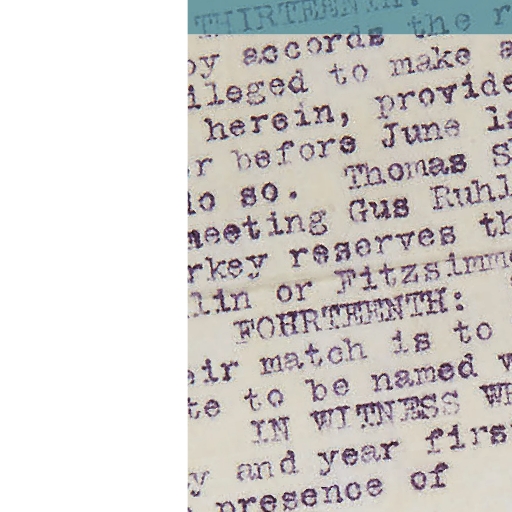 THIRTEENTH:
by accords the
ileged to make
herein, provide
before June
so. Thomas
meeting Gus Ruhl
rkey reserves
lin or Fitzsimm
FOHRTEENTH:
eir match is to
te to be named
IN WITNESS
and year firs
presence of